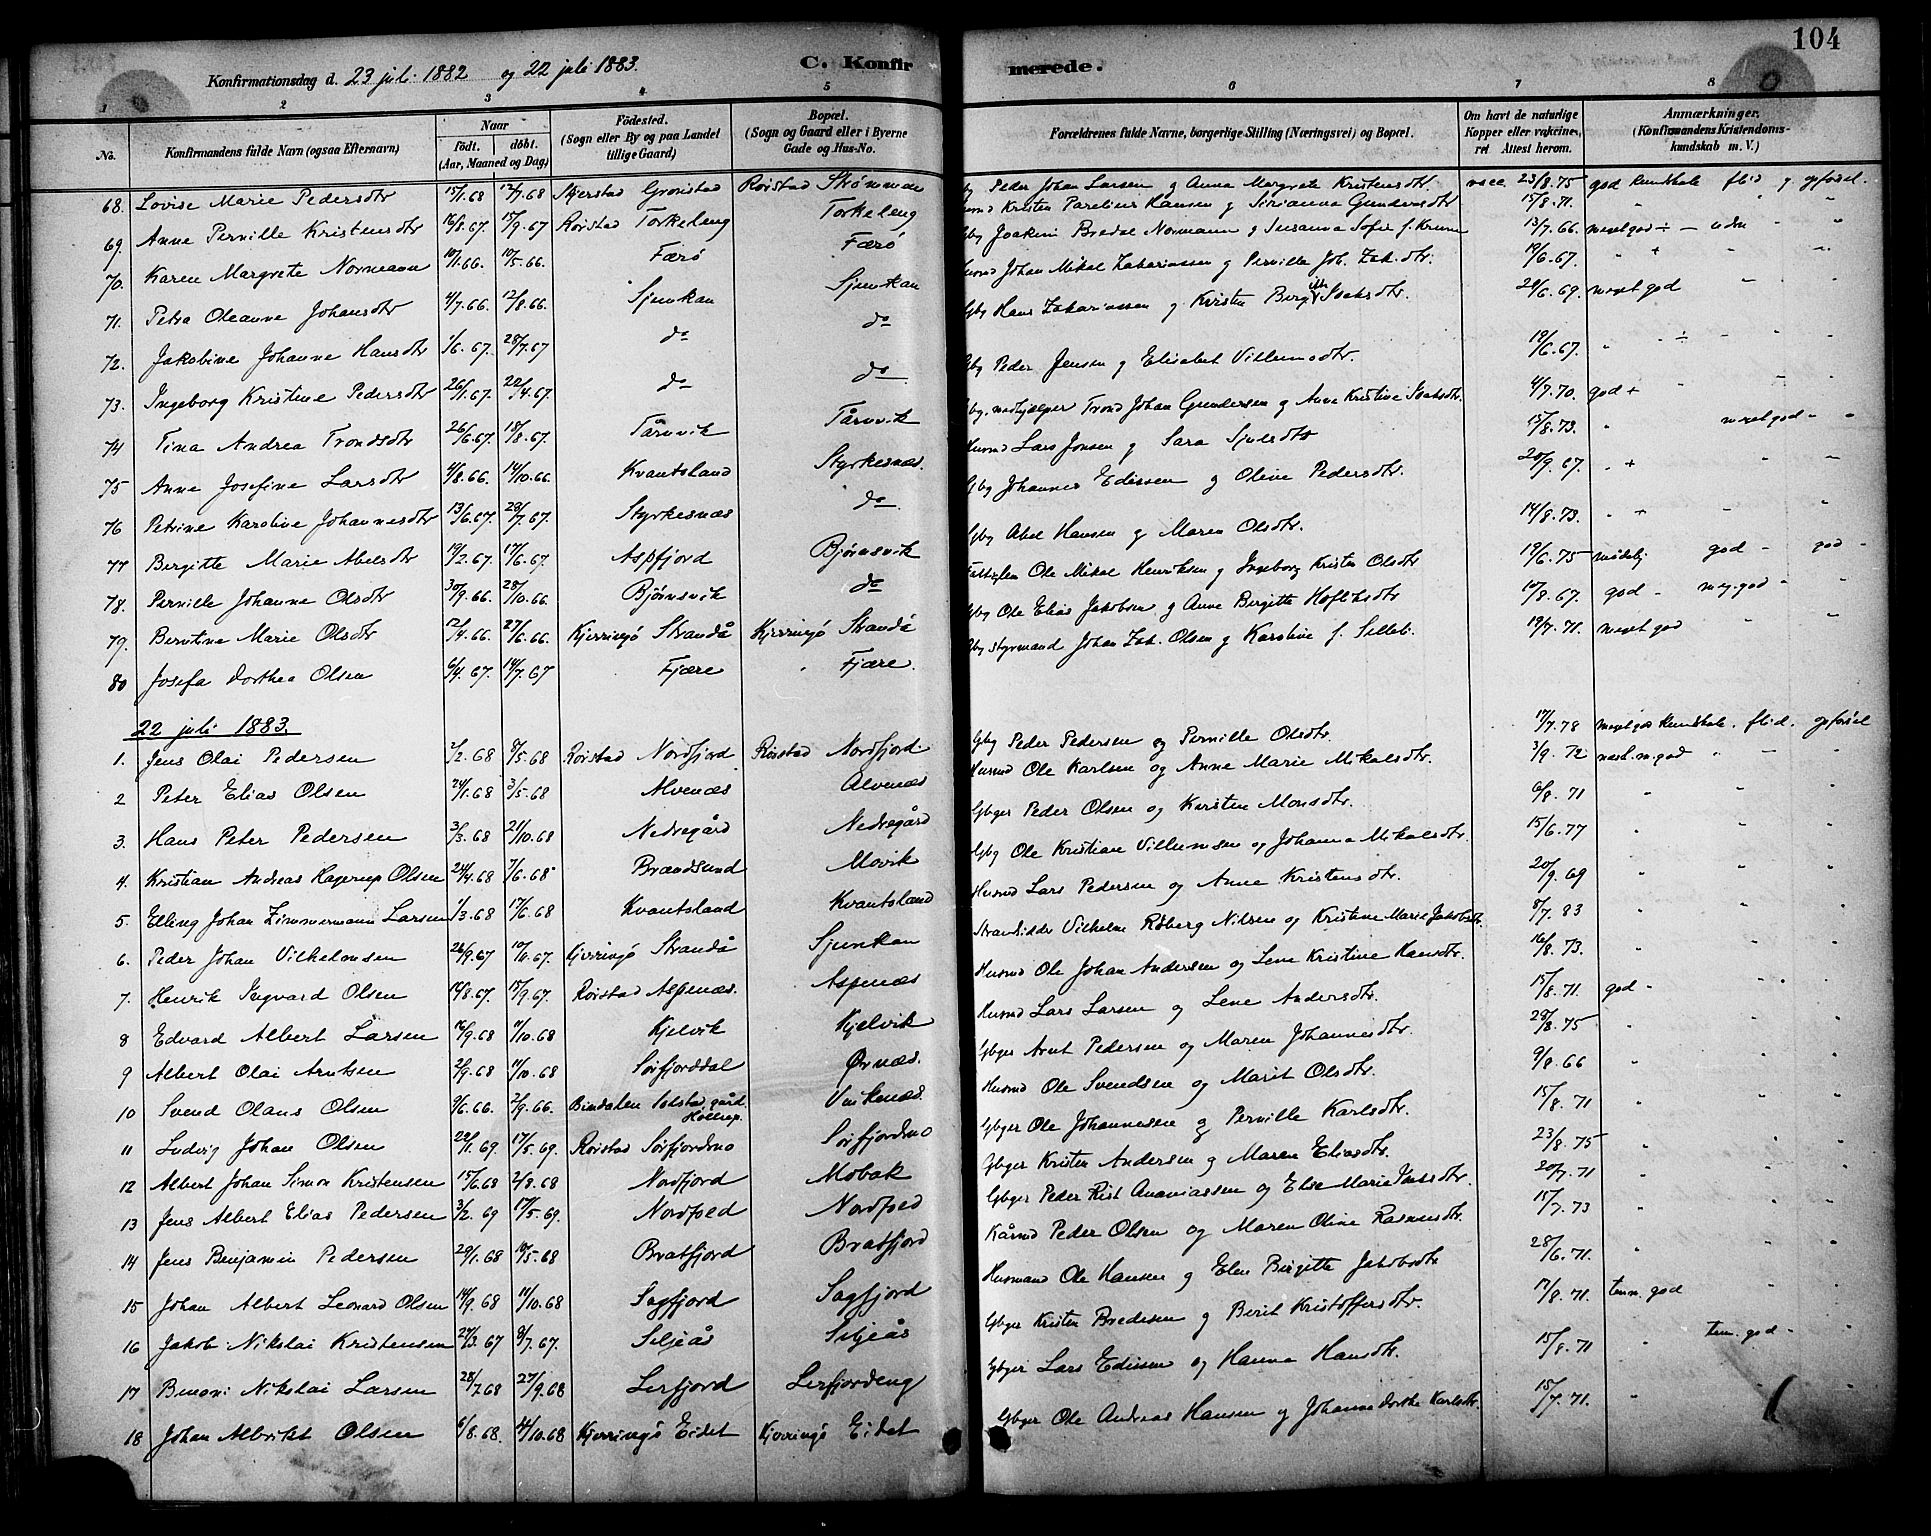 104
Konfirmationsdag d. 23 juli 1882 og 22 juli 1883.
C. Konfirmerede.
1 2 3 4 5 6 7 8
No. Konfirmandens fulde Navn (ogsaa Efternavn) Naar födt. döbt. (Aar, Maaned og Dag) Födested. (Sogn eller By og paa Landet tillige Gaard) Bopæl. (Sogn og Gaard eller i Byerne Gade og Hus-No. Forældrenes fulde Navne, borgerlige Stilling (Næringsvei) og Bopæl. Om havt de naturlige Kopper eller vakcineret. Attest herom. Anmærkninger. (Konfirmandens Kristendomskundskab m. V.)
68. Lovise Marie Pedersdtr 15/1.68 12/7.68 Skjerstad Rørstad Strømmen Gbg Peder Johan Larsen og Anna Margrete Kristensdtr. vacc. 23/8.75 god kundskab flid og opførsel
69. Anne Pernille Kristensdtr 16/8.67. 15/9.67 Rørstad Torkeleng Torkeleng Husmd Kristen Parelius Hansen og Sirianna Gundersdtr 15/8.71. " " "
70. Karen Margrete Normann 10/1.66. 10/5.66. Færö Færö Gbg Joakim Bredal Normann og Susanna Sofie f. 13/7.66. meget god
71. Petra Oleanne Johansdtr 4/7.66. 12/8.66. Sjunkan Sjunkan Husmd Johan Mikal Zakariassen og Pernille Joh. Zak.dtr. 19/6.67.
72. Jakobine Johanne Hansdtr 1/6.67. 28/7.67 do do Gbg Hans Zakariassen og Kristen Birgitte Isaksdtr. 24/6.69. meget god
73. Ingeborg Kristine Pedersdtr 26/1.67. 22/4.67. do do Gbg Peder Jensen og Elisabet Villumsdtr. 19/6.67.
74 Tina Andrea Trondsdtr 26/6.67. 18/8.67. Tårnvik Tårnvik Gbg, medhjælper Trond Johan Gundersen og Anne Kristine Isaksdtr. 4/7.70. god +
75 Anne Josefine Larsdtr 4/8.66. 14/10.66. Kvantsland Styrkesnæs. Husmd Lars Jonsen og Sara Sjulsdtr 15/8.73. " meget god - "
76 Petrine Karoline Johannesdtr 13/6.67. 28/7.67. Styrkesnæs do Gbg Johannes Edissen og Oline Pedersdtr. 20/9.67. " +
77 Birgitte Marie Abelsdtr 19/2.67. 17/6.67 Aspfjord Bjørnsvik Gbg Abel Hansen og Maren Olsdtr. 14/8.73. " +
78. Pernille Johanne Olsdtr 30/9.66. 28/10.66. Bjørnsvik do Ole Mikal Henriksen og Ingeborg Kristen Olsdtr 19/6.75 mådelig god - god -
79. Berntine Marie Olsdtr 12/4.66. 27/6.66. Kjerringö Strandå Kjerringö Strandå Gbg Ole Elias Jakobsen og Anne Birgitte 10/8.67. god - meg. god
80 Josefa Dorthea Olsen 6/4.67. 14/7.67 Fjære Fjære. Gbg Styrmand Johan Zak. Olsen og Karoline f. 19/7.71. meget god
22 juli 1883.
1. Jens Olai Pedersen 2/2.68 8/5.68 Rørstad Nordfjord Rørstad Nordfjord. Gbg Peder Pedersen og Pernille Olsdtr. 17/7.78 meget god kundskab. flid. opførsel
2 Peter Elias Olsen 24/1.68 3/5.68 Alvenæs Alvenæs Husmd Ole Karlsen og Anne Marie Mikalsdtr. 3/9.72 næst. m. god " " "
3. Hans Peter Pedersen 3/3.68 21/10.68 Nedregård Nedregård Gbger Peder Olsen og Kirsten Monsdtr. 6/8.71 " " "
4. Kristian Andreas Hagerup Olsen 24/4.68 7/6.68 Brændsund Movik Gbg Ole Kristian Villumsen og Johanna Mikalsdtr. 15/6.77 " " "
5. Elling Johan Zimmermann Larsen 1/3.68 17/6.68 Kvantsland Kvantsland Husmd Lars Pedersen og Anne Kristensdtr. 20/9.69 " " "
6. Peder Johan Vilhelmsen 26/9.67 10/11.67. Kjerringö Strandå Sjunkan Strandsidder Vilhelm Röberg Nilsen og Kristine Marie Jakobsdtr. 8/7.83 " " "
7. Henrik Ingvard Olsen 14/8.67. 15/9.67. Rørstad Aspenæs. Aspenæs Husmd Ole Johan Andersen og Lene Kristine Hansdtr. 16/8.73. " " "
8 Edvard Albert Larsen 16/9.68 11/10.68 Kjelvik Kjelvik Husmd Lars Larsen og Lene Andersdtr. 15/8.71. god - " "
9 Albert Olai Arntsen 2/9.68 11/10.68 Sörfjorddal Ørnæs. Gbger Arnt Pedersen og Maren Johannesdtr. 28/8.75 " " "
10 Svend Olaus Olsen 9/6.66. 2/9.66. Bindalen Solstad gård Vuiknæs. Husmd Ole Svendsen og Marit Olsdtr. 9/8.66 " " "
11 Ludvig Johan Olsen 22/1.69. 17/5.69. Rørstad Sörfjordmo Sörfjordmo Gbger Ole Johannesen og Pernille Karlsdtr. 15/8.71 " " "
12 Albert Johan Simon Kristensen 15/6.68 2/8.68 Nordfjord Mobak Gbger Kristen Andersen og Maren Eliasdtr. 23/8.75 " " "
13 Jens Albert Elias Pedersen 3/2.69 17/5.69. Nordfjord Nordfjord Gbger Peder Rist Ananiassen og Else Marie Isaksdtr. 20/7.71 " " "
14 Jens Benjamin Pedersen 29/1.68 10/5.68 Bratfjord Bratfjord Kårmd Peder Olsen og Maren Oline Rasmusdtr. 15/7.73 " " "
15 Johan Albert Leonard Olsen 14/9.68 11/10.68 Sagfjord Sagfjord Husmand Ole Hansen og Elen Birgitte Jakobsdtr 28/6.71. " " "
16 Jakob Nikolai Kristensen 27/3.67 8/7.67. Seljeås Seljeås Gbger Kristen Bredesen og Berit Kristoffersdtr. 17/8.71. tem. god " "
17 Benoni Nikolai Larsen 28/7.68 27/9.68 Lerfjord Lerfjordeng Gbger Lars Edissen og Hanna Hansdtr. 15/8.71 " tem. god - "
18 Johan Albrikt Olsen 6/8.68. 11/10.68 Kjerringö Eidet Kjerringö Eidet Gbger Ole Andreas Hansen og Johanna Dorthe Karlsdtr. 15/7.71. " " "